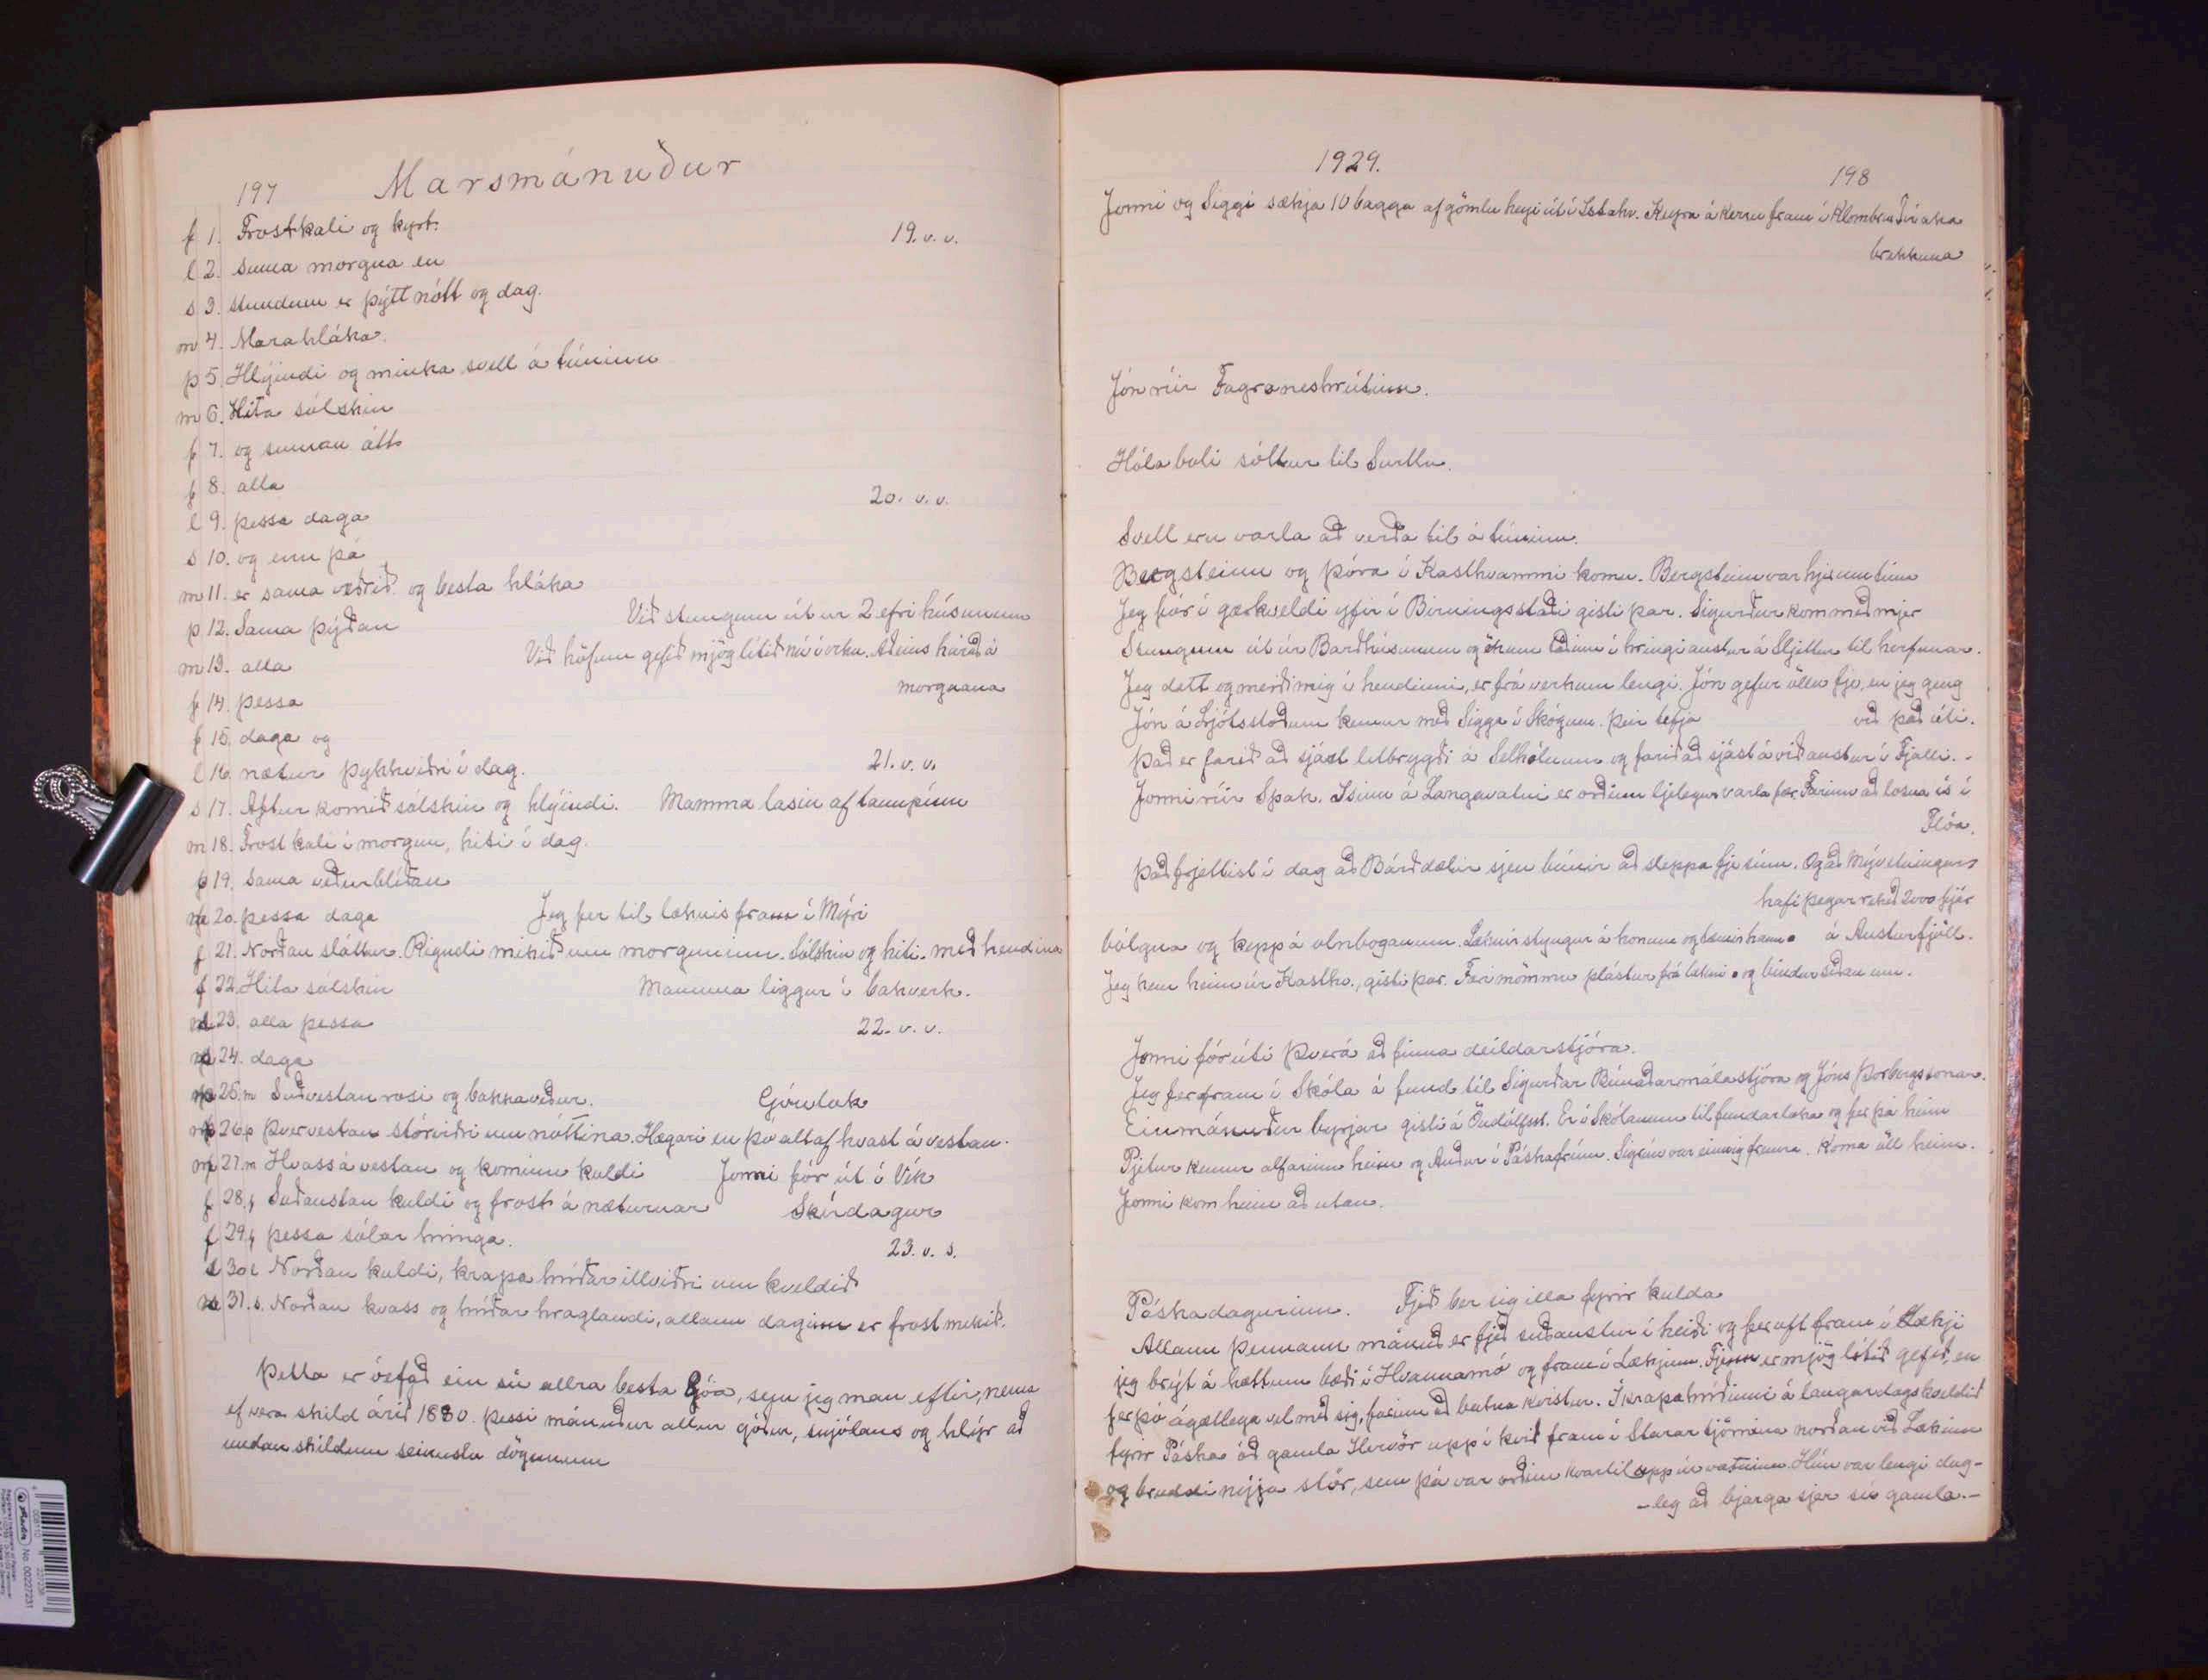 197 Marsmánuður
f 1. Frostkali og kyrt. 19. v. v.
l 2. suma morgna en
s 3. stundum er þýtt nótt og dag.
m 4. Marahláka.
þ 5. Hlýindi og minka svell á túninu
m 6. Hita sólskin
f 7. og sunnan átt
f 8. alla 20. v. v.
l 9. þessa daga
s 10. og enn þá
m 11. er sama veðrið og besta hláka
þ 12. Sama þýðan Við stungum út úr 2 efri húsunum
m 13. alla Við höfum gefið mjög lítið nú í viku. Aðeins hárað á
morgnana
f 14. þessa
f 15. daga og
l 16. nætur þykkviðri í dag. 21. v. v.
s 17. Aftur komið sólskin og hlýindi. Mamma lasin af tannpínu
m 18. Frost kali í morgun, hiti í dag.
þ 19. Sama veðurblíðan
m 20. þessa daga Jeg fer til læknis fram í Mýri
f 21. Norðan sláttur. Rigndi mikið um morguninn. Sólskin og hiti. með hendina
f 22. Hita sólskin Mamma liggur í bakverk.
l 23. alla þessa 22. v. v.
24. daga
25. m Suðvestan rosi og bakkaveður. Góulok
26. þ Þvervestan stórviðri um nóttina. Hægari en þó altaf hvast á vestan.
27. m Hvass á vestan og kominn kuldi Jonni fór út í Vík
28. f Suðaustan kuldi og frost á næturnar Skírdagur
29. f þessa sólar hringa. 23. v. s.
30 l Norðan kuldi, krapa hríðar illviðri um kveldið
31. s. Norðan hvass og hríðar hraglandi, allann daginn er frost mikið.
Þetta er óefað ein sú allra besta Góa, sem jeg man eftir, nema
ef vera skild árið 1880. Þessi mánuður allur góður, snjólaus og hlýr að
undan skildum seinustu dögunum
1929. 198
Jonni og Siggi sækja 10 bagga af gömlu heyi út í Ístahv. Keyra á kerru fram í Klömbru
brekkuna
Jón rúir Fagraneshrútinn.
Hóla boli sóttur til Surtlu.
Svell eru varla að verða til á túninu.
Bergsteinn og Þóra í Kasthvammi komu. Bergsteinn var hjá um tíma
Jeg fór í gærkveldi yfir í Birningsstaði gisti þar. Sigurður kom með mjer
Stungum út úr Barðhúsunum og ökum taðinu í hringi austur á Sljettu til herfunar.
Jeg datt og meiddi mig í hendinni, er frá verkum lengi. Jón gefur öllu fje, en jeg geng
Jón á Ljótsstöðum kemur með Sigga í Skógum. Þeir tefja við það úti.
Það er farið að sjást litbrygði á Selhólnum og farið að sjást á við austur í Fjalli.-
Jonni rúir Spak. Ísinn á Langavatni er orðinn ljelegur varla fær. Farinn að losna ís í
Flóa.
Það frjettist í dag að Bárðdælir sjeu búnir að sleppa fje sínu. Og að Mývetningar
hafi þegar rekið 2000 fjár
bólgna og kepp á olnboganum. Læknir styngur á honum og tæmir hann. á Austurfjöll.
Jeg kem heim úr Kasthv., gisti þar. Færi mömmu plástur frá lækni og bindur síðan um.
Jonni fór út í Þverá að finna deildarstjóra.
Jeg fer fram í Skóla á fund til Sigurðar Búnaðarmálastjóra og Jóns Þorbergssonar.
Einmánuður byrjar gisti á Öndólfsst. Er í Skólanum til fundarloka og fer þá heim
Pjetur kemur alfarinn heim og Auður í Páskafríinu. Sigrún var einnig framm. Koma öll heim.
Jonni kom heim að utan.
Páskadagurinn. Fjeð ber sig illa fyrir kulda
Allann þennann mánuð er fjeð suðaustur í heiði og fer oft fram í Lækji
jeg brýt á hættum bæði í Hvannamó og fram í Lækjinn. Fjenu er mjög lítið gefið, en
fer þó ágætlega vel með sig, farinn að batna kvistur. Í krapahríðinni á laugardagskveldið
fyrir Páska óð gamla Hervör upp í kvið fram í Starar tjörnina norðan við Lækinn
og bruddi nýja stör, sem þá var orðin kvartil upp úr vatninu. Hún var lengi dug-
-leg að bjarga sjer sú gamla.-